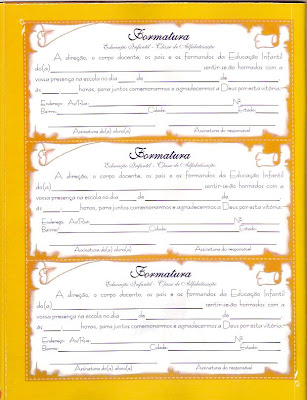 Formatura
Educação Infantil - Classe de Alfabetização
A direção, o corpo docente, os pais e os formandos da Educação Infantil
do(a) sentir-se-ão honrados com a
vossa presença na escola no dia de de
às horas, para juntos comemorarmos e agradecermos a Deus por esta vitória.
Endereço: Av/Rua: Nº
Bairro: Cidade: Estado:
Assinatura do(a) aluno(a) Assinatura do responsável
Formatura
Educação Infantil - Classe de Alfabetização
A direção, o corpo docente, os pais e os formandos da Educação Infantil
do(a) sentir-se-ão honrados com a
vossa presença na escola no dia de de
às horas, para juntos comemorarmos e agradecermos a Deus por esta vitória.
Endereço: Av/Rua: Nº
Bairro: Cidade: Estado:
Assinatura do(a) aluno(a) Assinatura do responsável
Formatura
Educação Infantil - Classe de Alfabetização
A direção, o corpo docente, os pais e os formandos da Educação Infantil
do(a) sentir-se-ão honrados com a
vossa presença na escola no dia de de
às horas, para juntos comemorarmos e agradecermos a Deus por esta vitória.
Endereço: Av/Rua: Nº
Bairro: Cidade: Estado:
Assinatura do(a) aluno(a) Assinatura do responsável